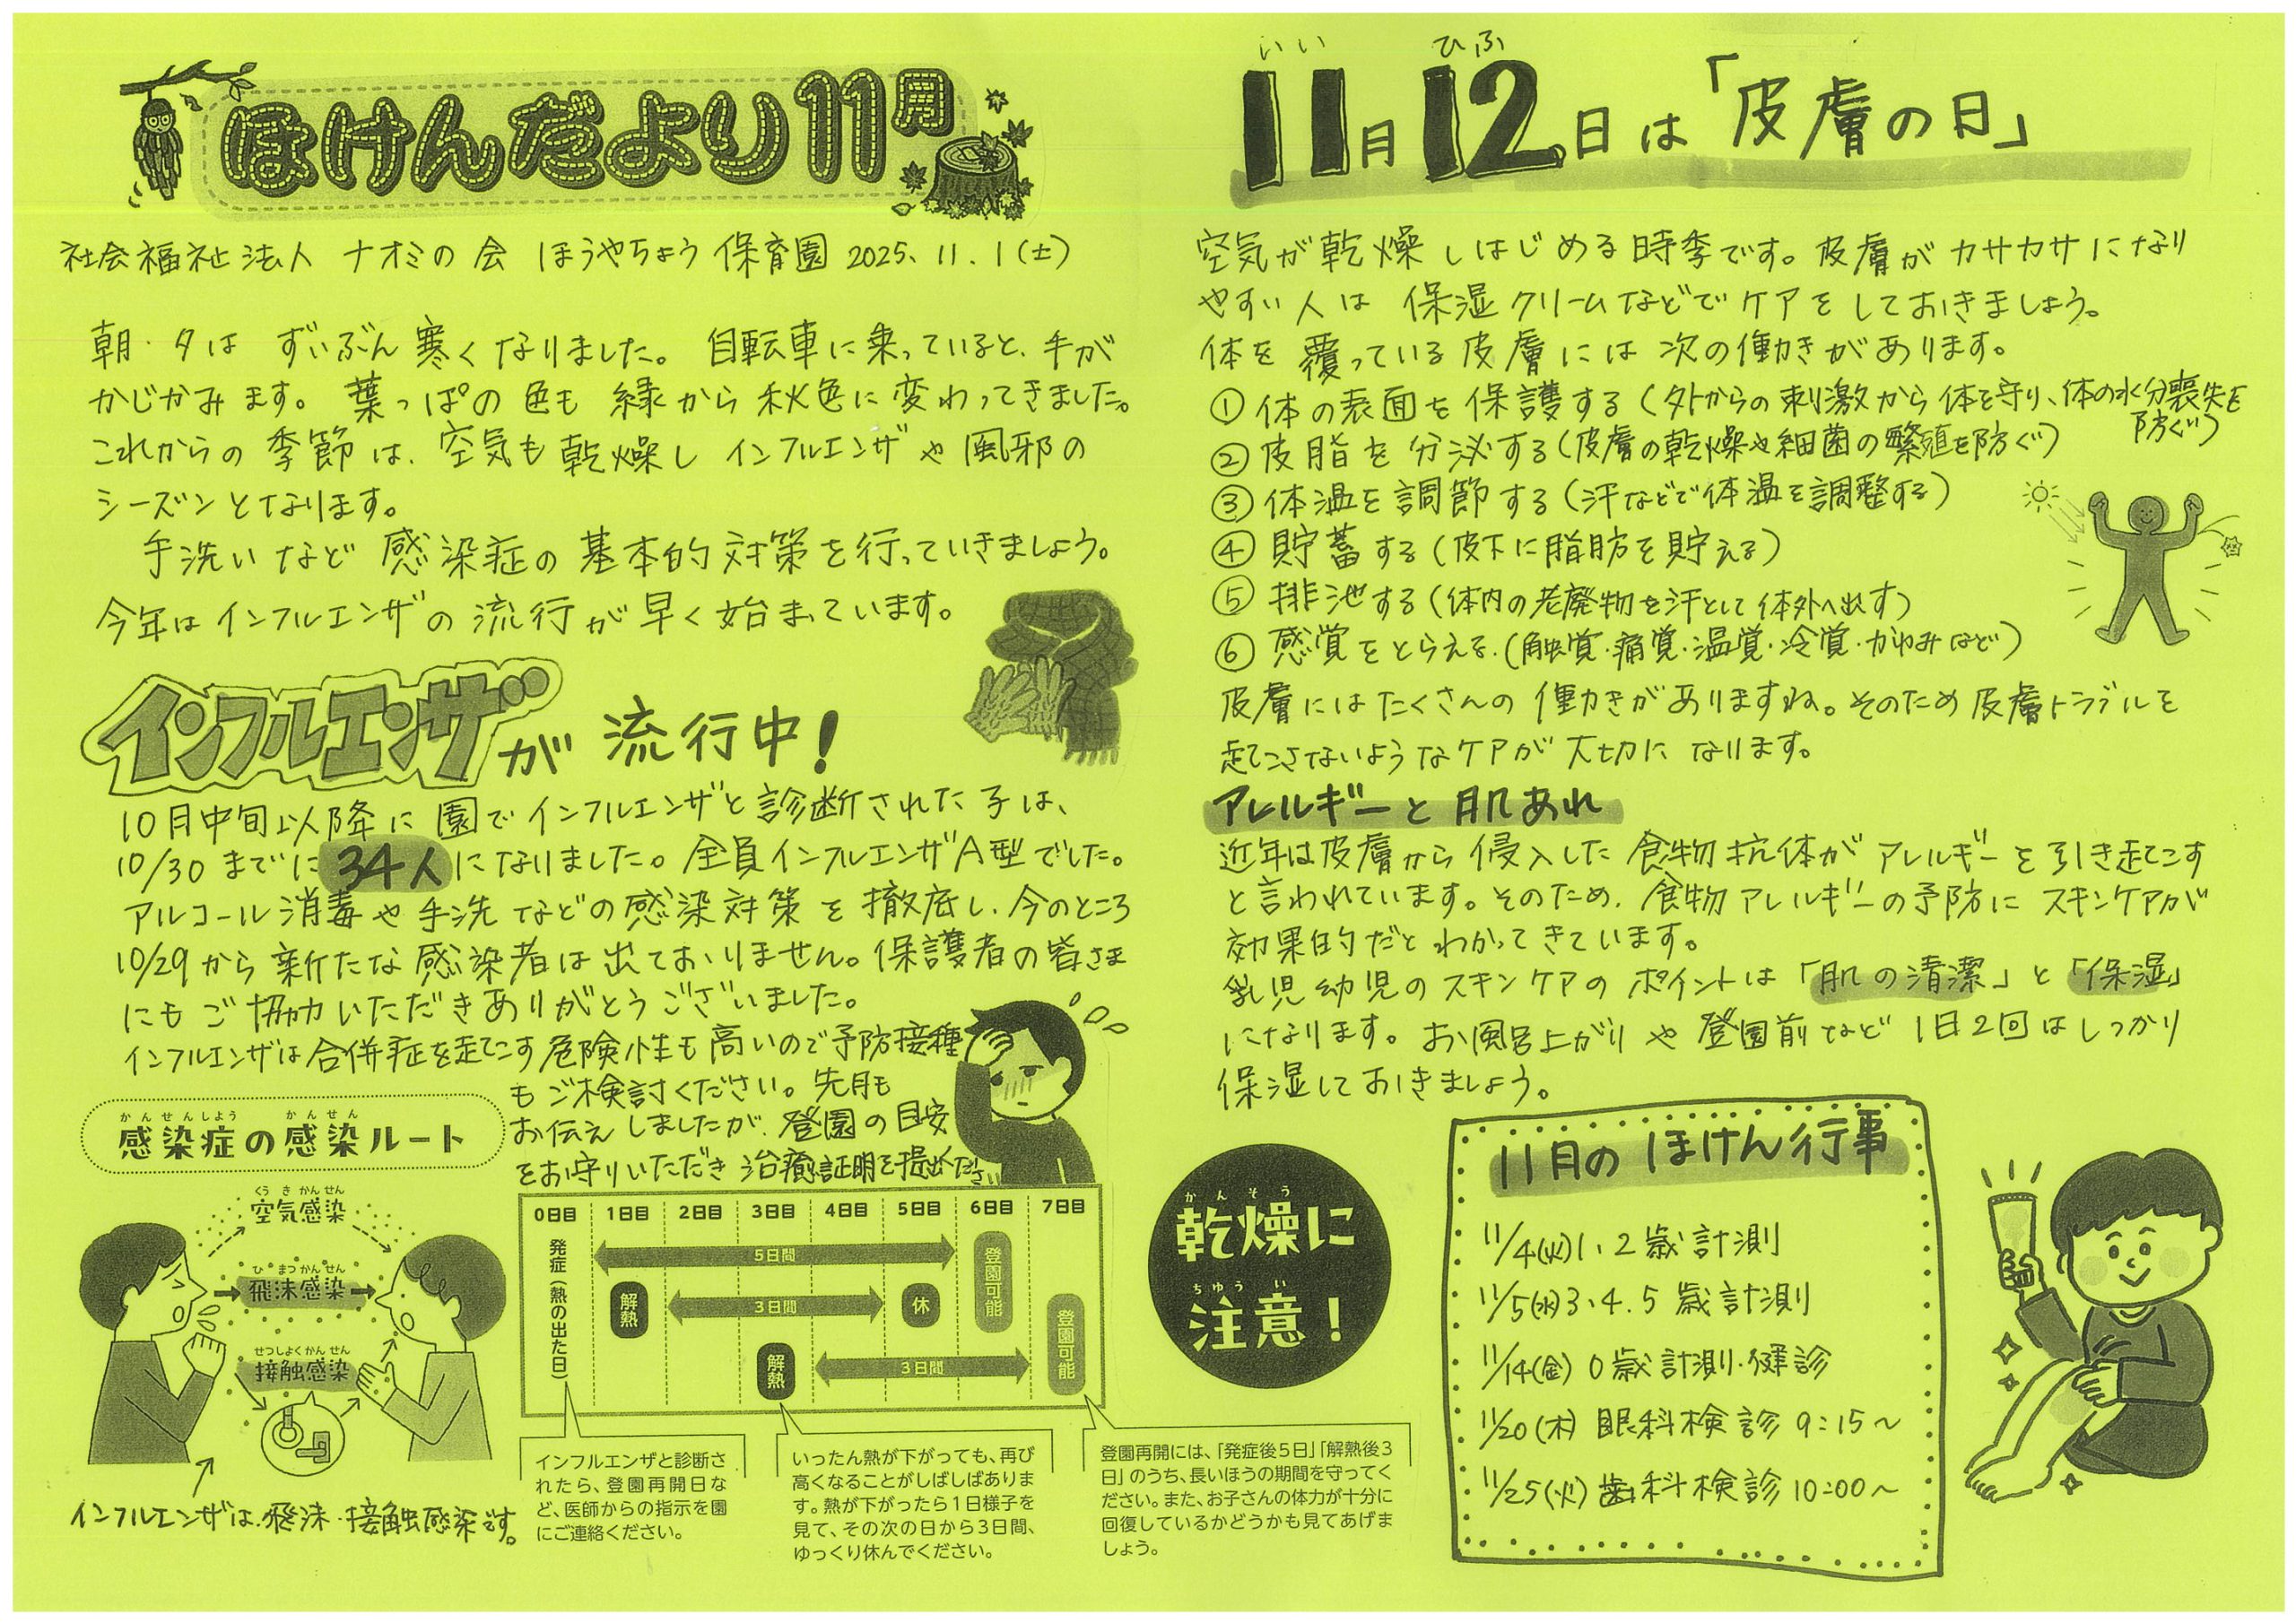 ほけんだより11月
社会福祉法人 ナオミの会 ほうやちょう保育園 2025.11.1(土)
朝・夕は ずいぶん寒くなりました。自転車に乗っていると、手が
かじかみます。葉っぱの色も 緑から秋色に変わってきました。
これからの季節は、空気も乾燥し インフルエンザや風邪の
シーズンとなります。
手洗いなど 感染症の基本的対策を行っていきましょう。
今年はインフルエンザの流行が早く始まっています。
インフルエンザが 流行中!
10月中旬以降に園でインフルエンザと診断された子は、
10/30までに34人になりました。全員インフルエンザA型でした。
アルコール消毒や手洗などの感染対策を徹底し、今のところ
10/29から新たな感染者は出ておりません。保護者の皆さま
にもご協力いただきありがとうございました。
インフルエンザは合併症を起こす危険性も高いので予防接種
もご検討ください。先月も
お伝えしましたが、登園の目安
をお守りいただき治癒証明を提出ください。
かんせんしょう かんせん
感染症の感染ルート
くうきかんせん
空気感染
ひまつかんせん
飛沫感染
せっしょくかんせん
接触感染
インフルエンザは、飛沫・接触感染です。
0日目 1日目 2日目 3日目 4日目 5日目 6日目 7日目
発症(熱の出た日)
5日間
登園可能
解熱
3日間
休
解熱
3日間
登園可能
インフルエンザと診断さ
れたら、登園再開日な
ど、医師からの指示を園
にご連絡ください。
いったん熱が下がっても、再び
高くなることがしばしばありま
す。熱が下がったら1日様子を
見て、その次の日から3日間、
ゆっくり休んでください。
登園再開には、「発症後5日」「解熱後3
日」のうち、長いほうの期間を守ってく
ださい。また、お子さんの体力が十分に
回復しているかどうかも見てあげま
しょう。
いい ひふ
11月12日は「皮膚の日」
空気が乾燥しはじめる時季です。皮膚がカサカサになり
やすい人は 保湿クリームなどでケアをしておきましょう。
体を覆っている皮膚には次の働きがあります。
①体の表面を保護する(外からの刺激から体を守り、体の水分喪失を
防ぐ)
②皮脂を分泌する(皮膚の乾燥や細菌の繁殖を防ぐ)
③体温を調節する(汗などで体温を調整する)
④貯蓄する(皮下に脂肪を貯える)
⑤排泄する(体内の老廃物を汗として体外へ出す)
⑥感覚をとらえる(触覚・痛覚・温覚・冷覚・かゆみなど)
皮膚にはたくさんの働きがありますね。そのため皮膚トラブルを
起こさないようなケアが大切になります。
アレルギーと肌あれ
近年は皮膚から侵入した食物抗体がアレルギーを引き起こす
と言われています。そのため、食物アレルギーの予防にスキンケアが
効果的だとわかってきています。
乳児幼児のスキンケアのポイントは「肌の清潔」と「保湿」
になります。お風呂上がりや登園前など1日2回はしっかり
保湿しておきましょう。
かんそう
乾燥に
ちゅうい
注意!
11月のほけん行事
11/4(火)1、2歳計測
11/5(水)3、4、5歳計測
11/14(金) 0歳計測・健診
11/20(木) 眼科検診 9:15～
11/25(火) 歯科検診 10:00～